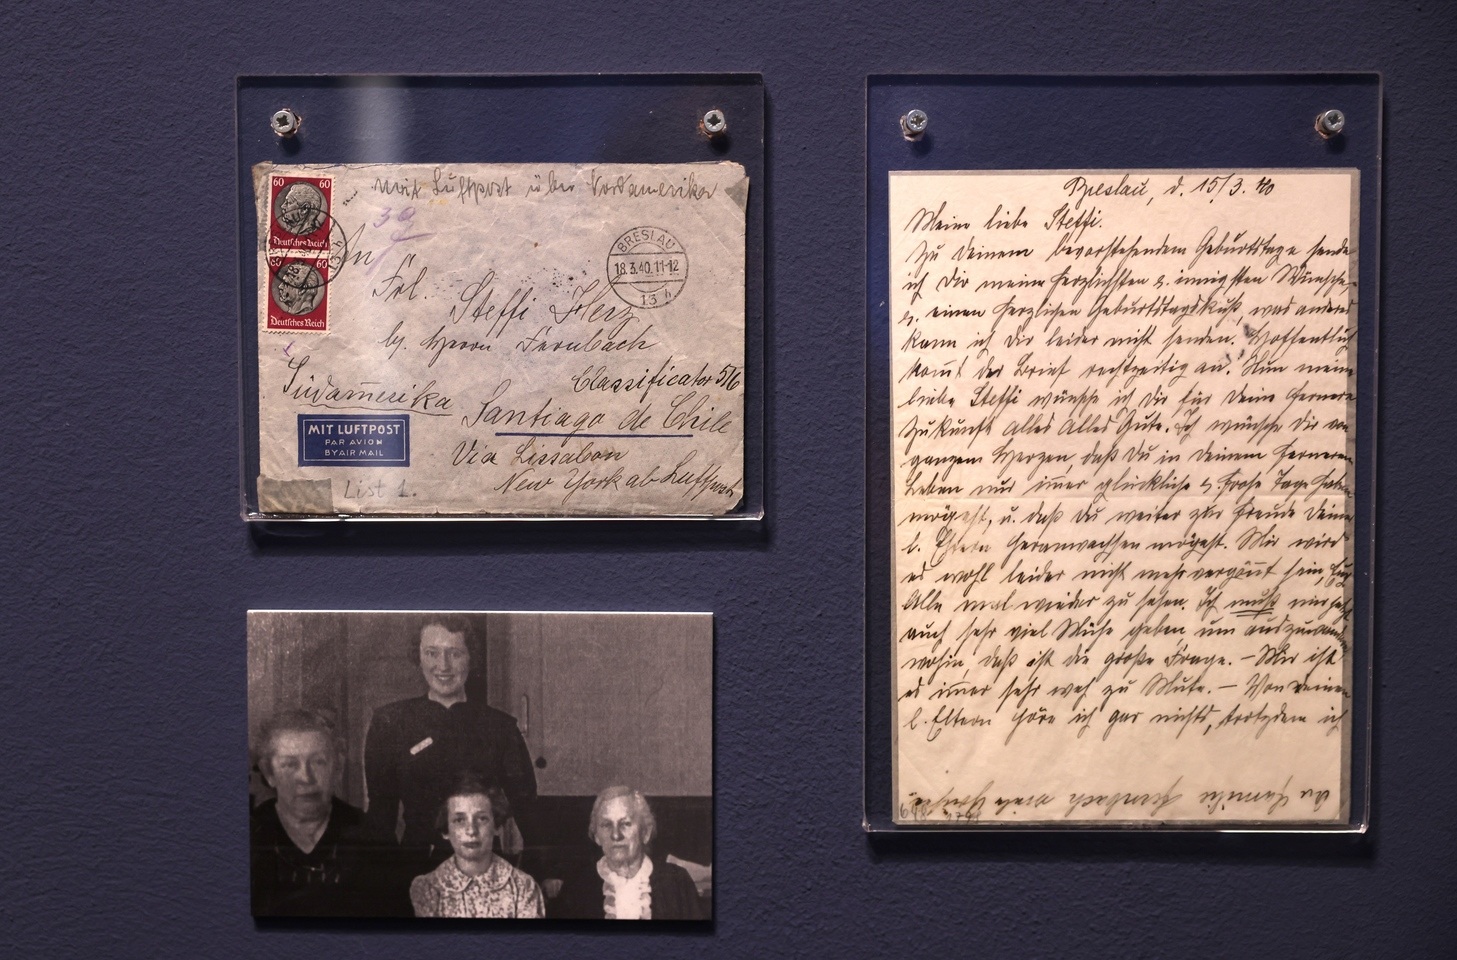 60 60
Deutsches Reich
60
Deutsches Reich
Mit Luftpost über Nordamerika
An
Frl. Steffi Herz
bj. Herrn Fernbach
BRESLAU
18.3.40.11-12
13
Südamerika
Classificator 516
Santiago de Chile
Via Lissabon
New York ab Luftpost
MIT LUFTPOST
PAR AVION
BY AIR MAIL
List 1.
Breslau, d. 15/3. 40
Meine liebe Steffi.
Zu Deinem bevorstehendem Geburtstage sende
ich Dir meine herzlichsten u. innigsten Wünsche
u. einen herzlichen Geburtstagskuß, was anderes
kann ich Dir leider nicht senden. Hoffentlich
kom̅t der Brief rechtzeitig an. Nun meine
liebe Steffi wünsche ich Dir für Deine fernere
Zukunft alles alles Gute. Ich wünsche Dir von
ganzem Herzen, daß Du in Deinem ferneren
Leben nur im̅er glückliche u. frohe Tage haben
mögest, u. daß Du weiter zur Freude Deiner
l. Eltern heranwachsen mögest. Mir wird
es wohl leider nicht mehr vergön̅t sein, Euch
Alle mal wieder zu sehen. Ich muß mir jetzt
auch sehr viel Mühe geben, um auszuwandern
wohin, daß ist die große Frage. – Mir ist
es im̅er sehr weh zu Mute. – Von Deinen
l. Eltern höre ich gar nichts, trotzdem ich
An Familie Fernbach viele Grüße